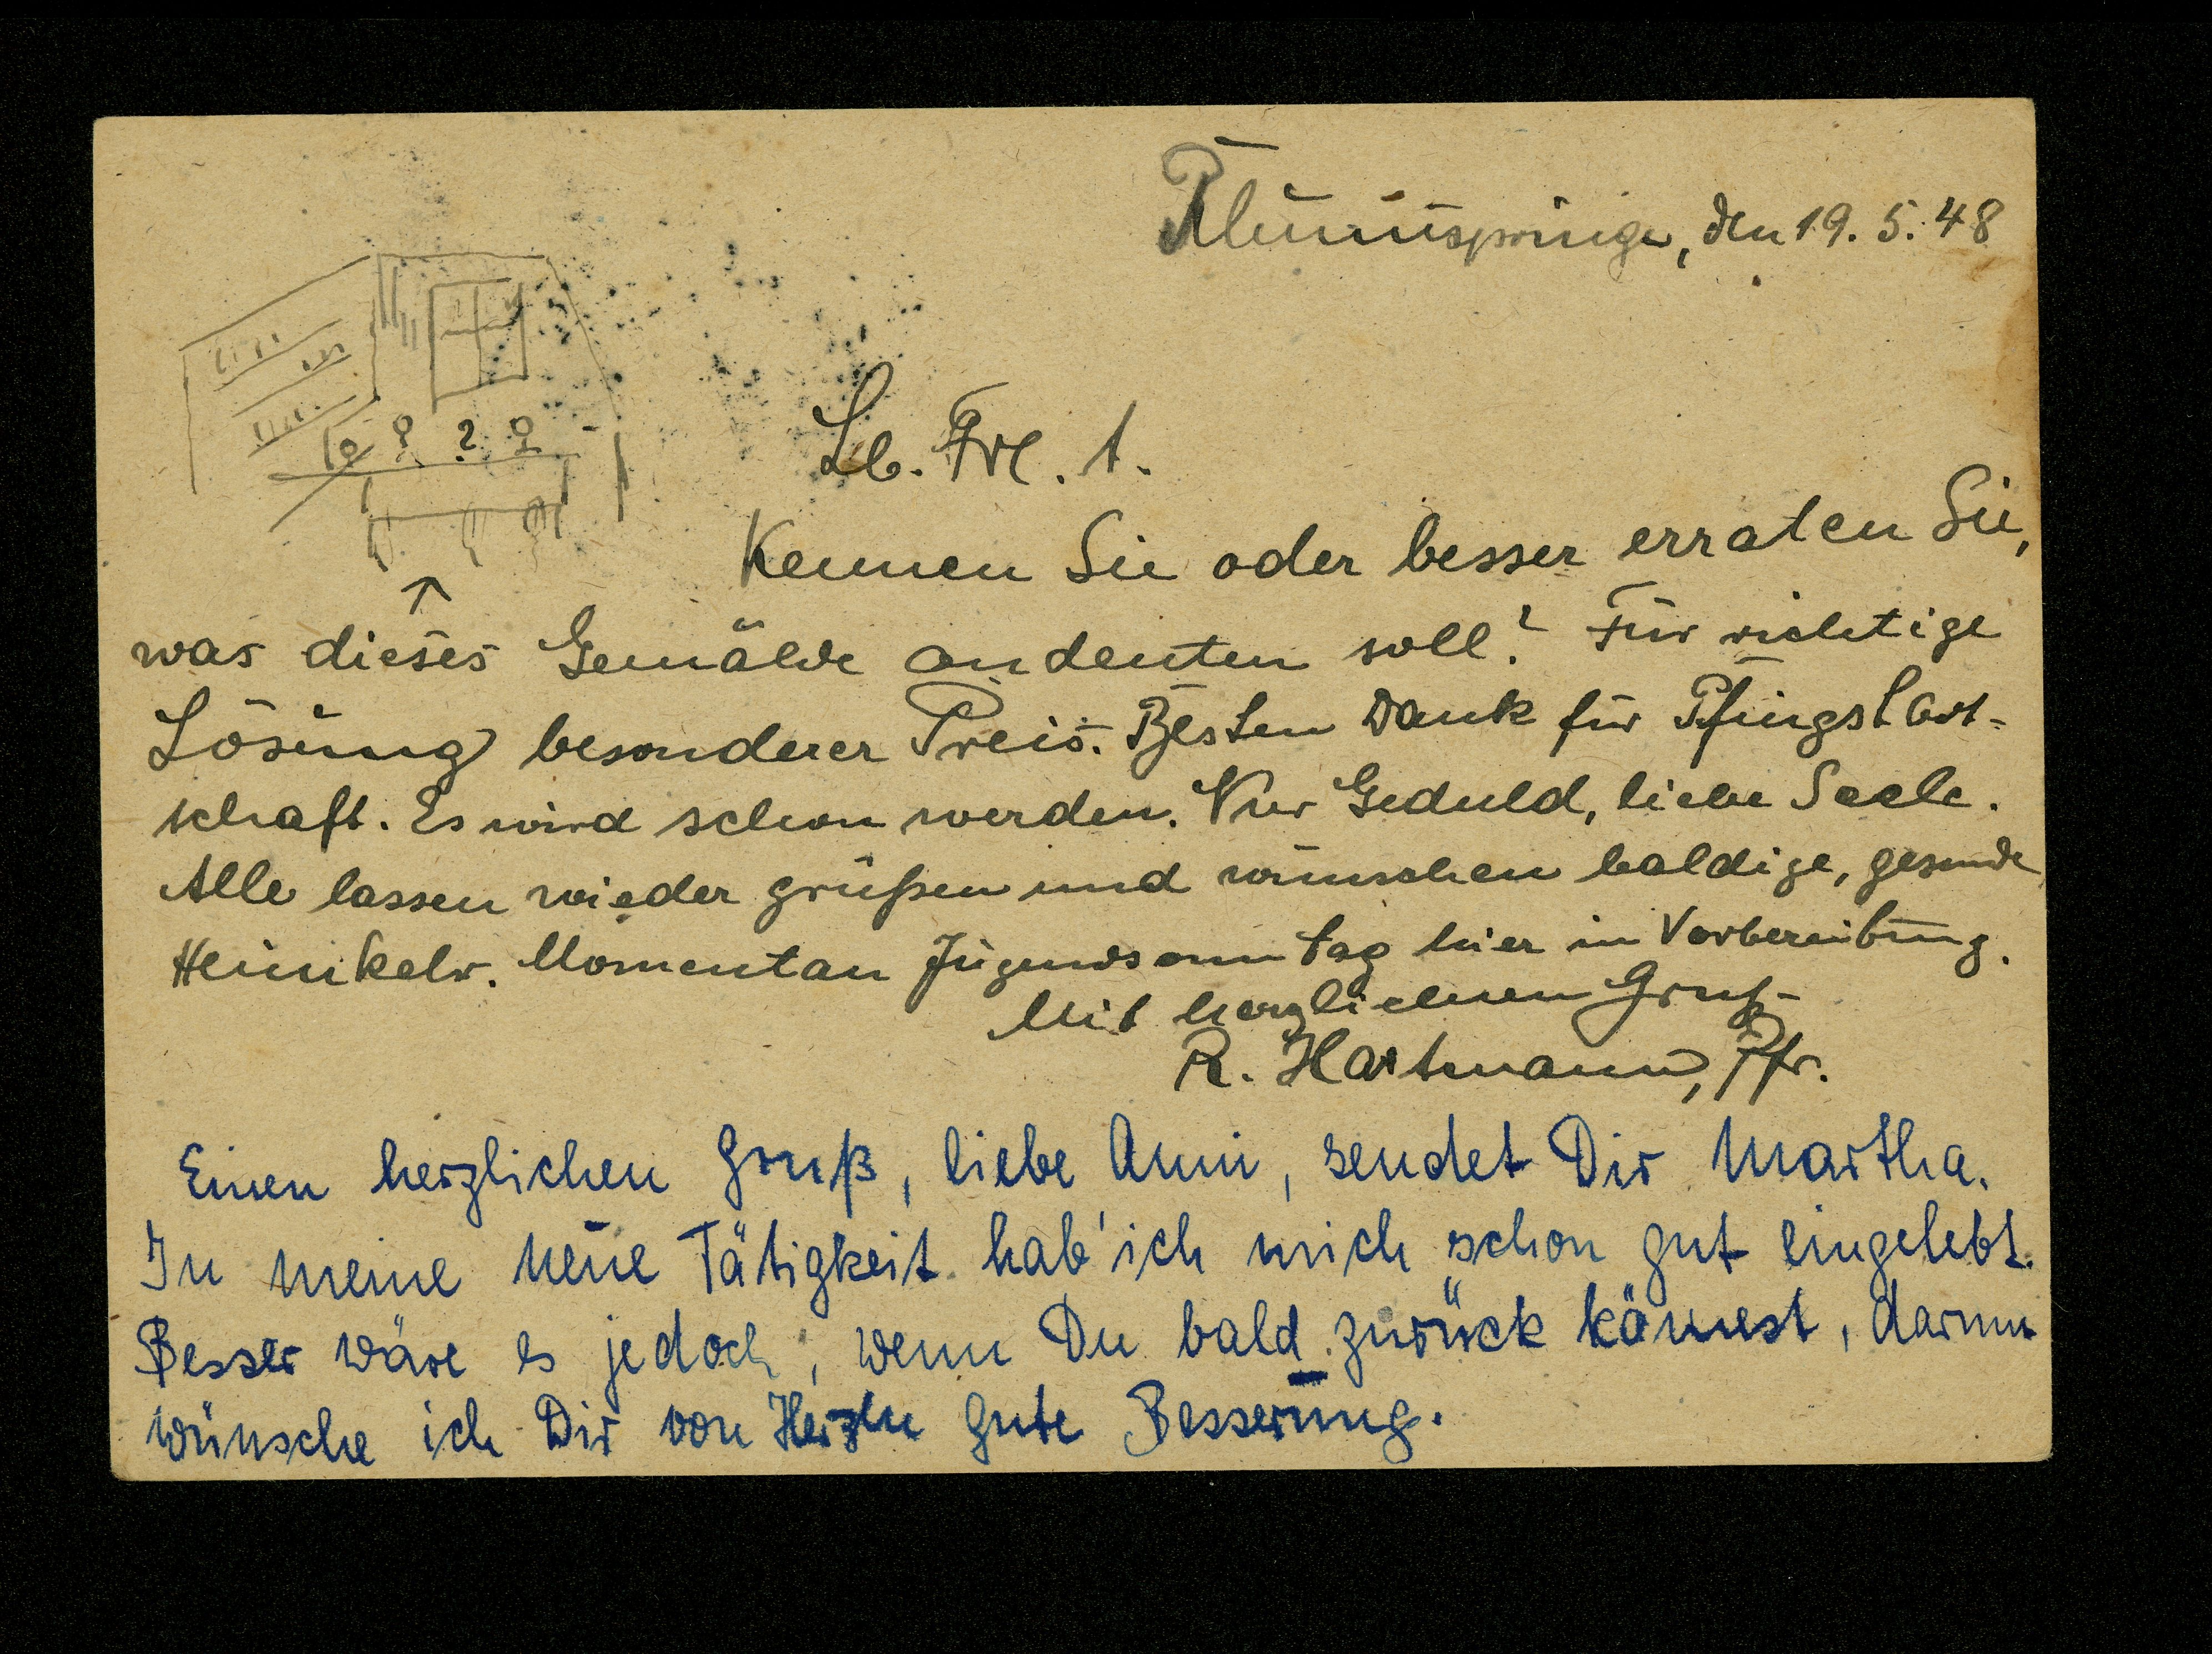 den 19. 5. 48
? ? ?
Lb. Frl. A.
Kennen Sie oder besser erraten Sie,
was dieses Gemälde andeuten soll? Für richtige
Lösung besonderer Preis. Besten Dank für Pfingstbot-
schaft. Es wird schon werden. Nur Geduld, liebe Seele.
Alle lassen wieder grüßen und wünschen baldige, gesunde
Heimkehr. Momentan Jugendsonntag hier in Vorbereitung.
Mit herzlichem Gruß
R. Hartmann, Pfr.
Einen herzlichen Gruß, liebe Anni, sendet Dir Martha.
In meine neue Tätigkeit hab' ich mich schon gut eingelebt.
Besser wäre es jedoch, wenn Du bald zurück kämest, darum
wünsche ich Dir von Herzen gute Besserung.